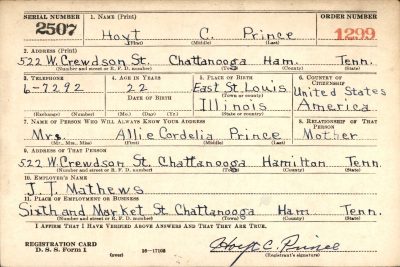 SERIAL NUMBER 1. NAME (Print) ORDER NUMBER
2507 Hoyt C. Prince 1299
(First) (Middle) (Last)
2. ADDRESS (Print)
522 W. Crewdson St. Chattanooga Ham. Tenn.
(Number and street or R. F. D. number) (Town) (County) (State)
3. TELEPHONE 4. AGE IN YEARS 5. PLACE OF BIRTH 6. COUNTRY OF CITIZENSHIP
6-7292 22 East St. Louis United States
DATE OF BIRTH (Town or county)
Illinois America
(Exchange) (Number) (Mo.) (Day) (Yr.) (State or country)
7. NAME OF PERSON WHO WILL ALWAYS KNOW YOUR ADDRESS 8. RELATIONSHIP OF THAT PERSON
Mrs. Allie Cordelia Prince Mother
(Mr., Mrs., Miss) (First) (Middle) (Last)
9. ADDRESS OF THAT PERSON
522 W. Crewdson St. Chattanooga Hamilton Tenn.
(Number and street or R. F. D. number) (Town) (County) (State)
10. EMPLOYER'S NAME
J. T. Mathews
11. PLACE OF EMPLOYMENT OR BUSINESS
Sixth and Market St. Chattanooga Ham. Tenn.
(Number and street or R. F. D. number) (Town) (County) (State)
I AFFIRM THAT I HAVE VERIFIED ABOVE ANSWERS AND THAT THEY ARE TRUE.
REGISTRATION CARD
D. S. S. Form 1 (over) 16-17105 Hoyt C. Prince
(Registrant's signature)